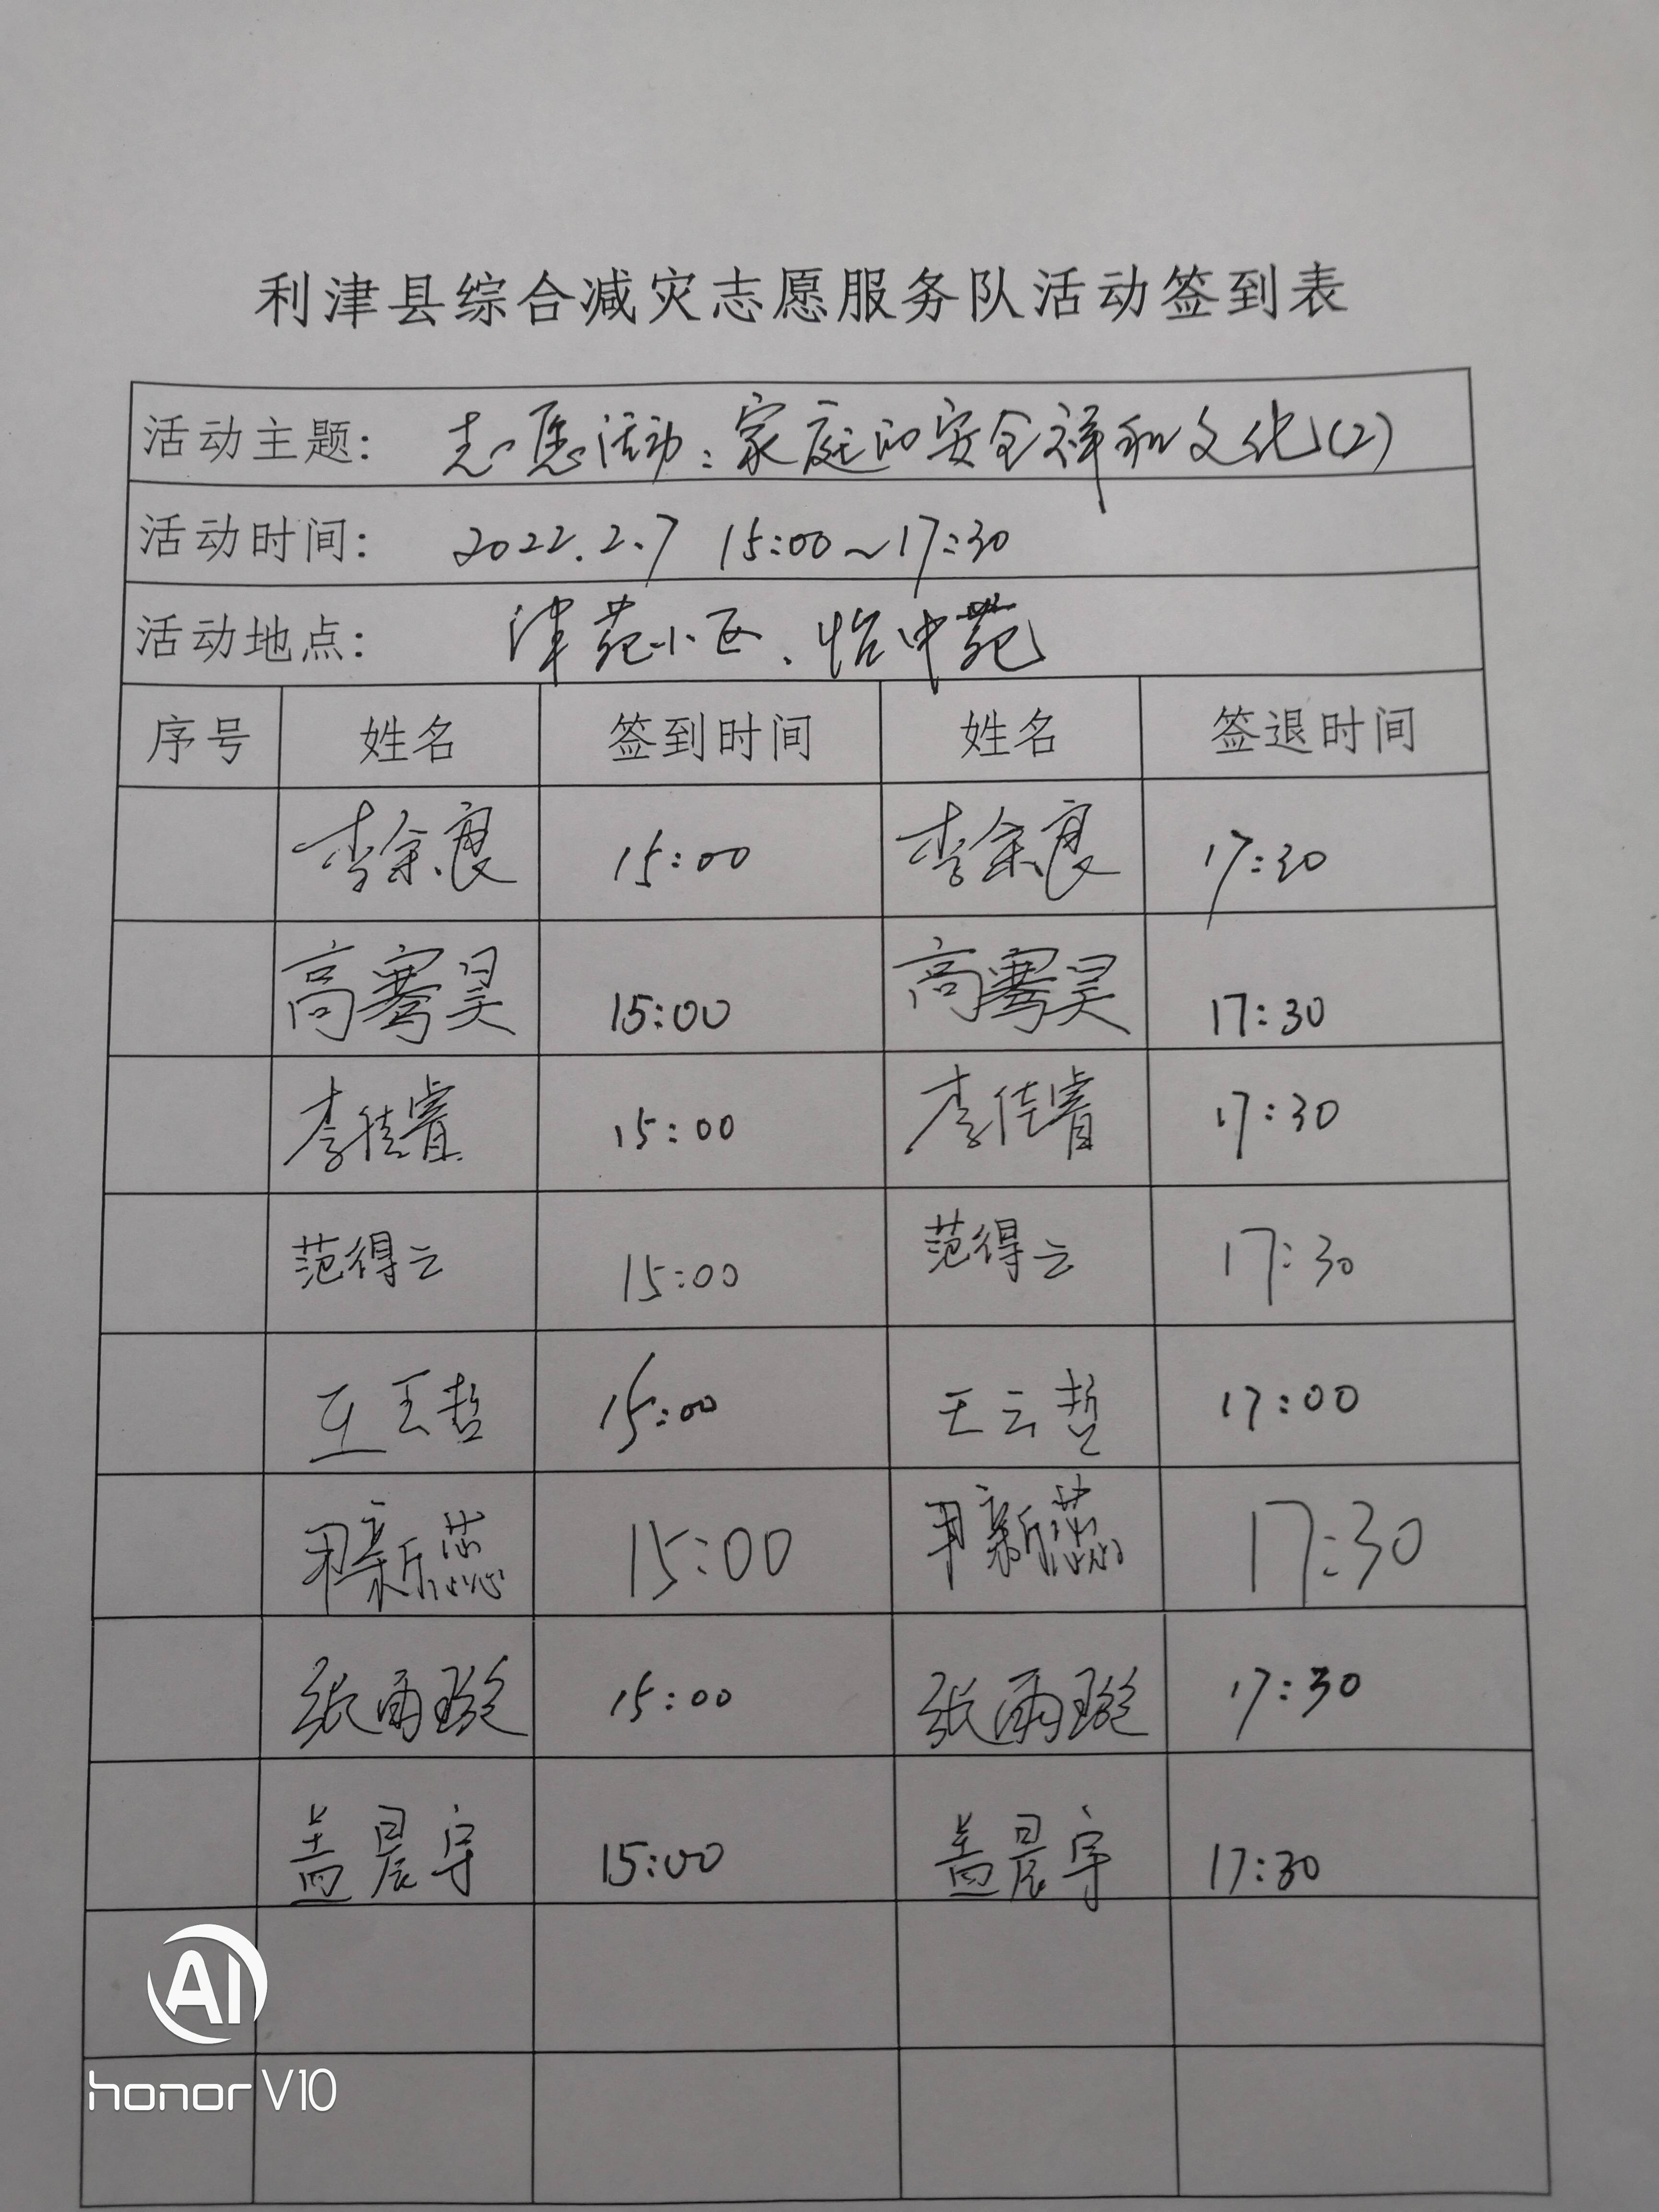 利津县综合减灾志愿服务队活动签到表
活动主题: 志愿活动:家庭的安全祥和文化(2)
活动时间: 2022.2.7 15:00~17:30
活动地点: 津苑小区、怡中苑
序号 姓名 签到时间 姓名 签退时间
李余良 15:00 李余良 17:30
高骞昊 15:00 高骞昊 17:30
李佳睿 15:00 李佳睿 17:30
范得云 15:00 范得云 17:30
15:00 王云哲 17:00
尹新蕊 15:00 尹新蕊 17:30
张雨璇 15:00 张雨璇 17:30
盖晨宇 15:00 盖晨宇 17:30
AI
honor V10